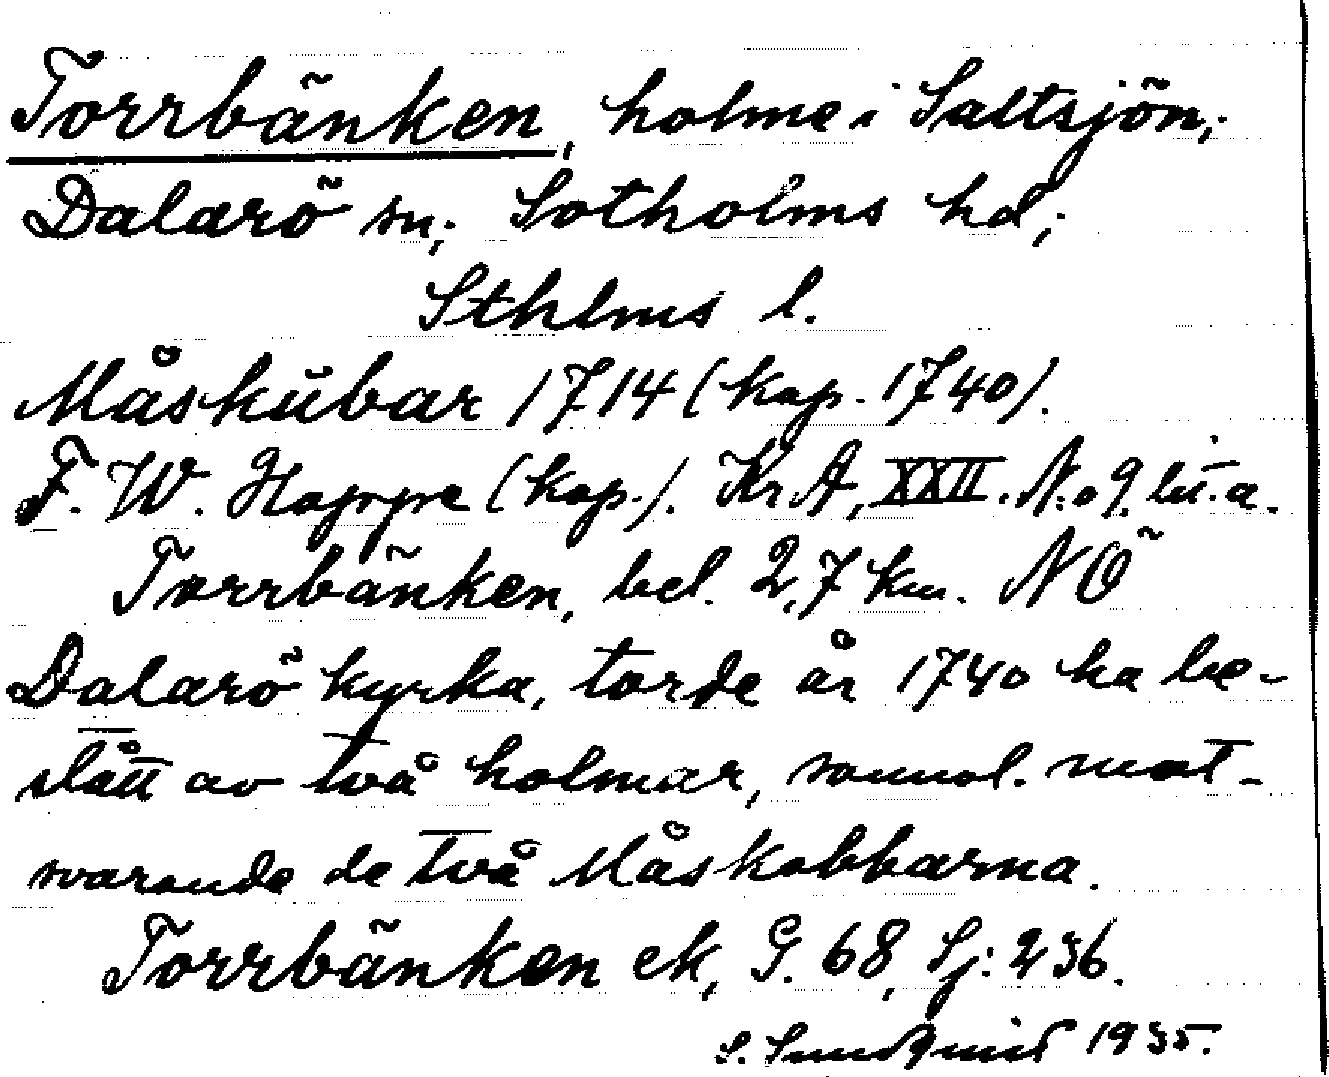 Torrbänken, holme i Saltsjön,
Dalarö sn; Sotholms hd;
Sthlms l.
Måskŭbar 1714 (kop. 1740).
F. W. Hoppe (kop.). KrA, XXII. N:o 9. lit. a.
Torrbänken, bel. 2,7 km. NÖ
Dalarö kyrka, torde år 1740 ha be-
stått av två holmar, sannol. mot-
svarande de två Måskobbarna.
Torrbänken ek, G. 68, Sj: 236.
S. Sundqvist 1935.